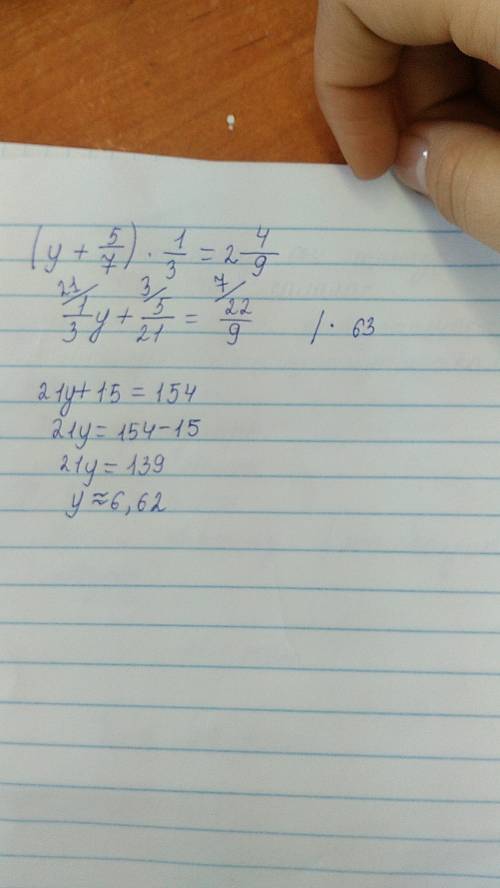 (y + 5/7) · 1/3 = 2 4/9
21/ 3/ 7/
1/3 y + 5/21 = 22/9 /· 63
21y + 15 = 154
21y = 154 - 15
21y = 139
y ≈ 6,62